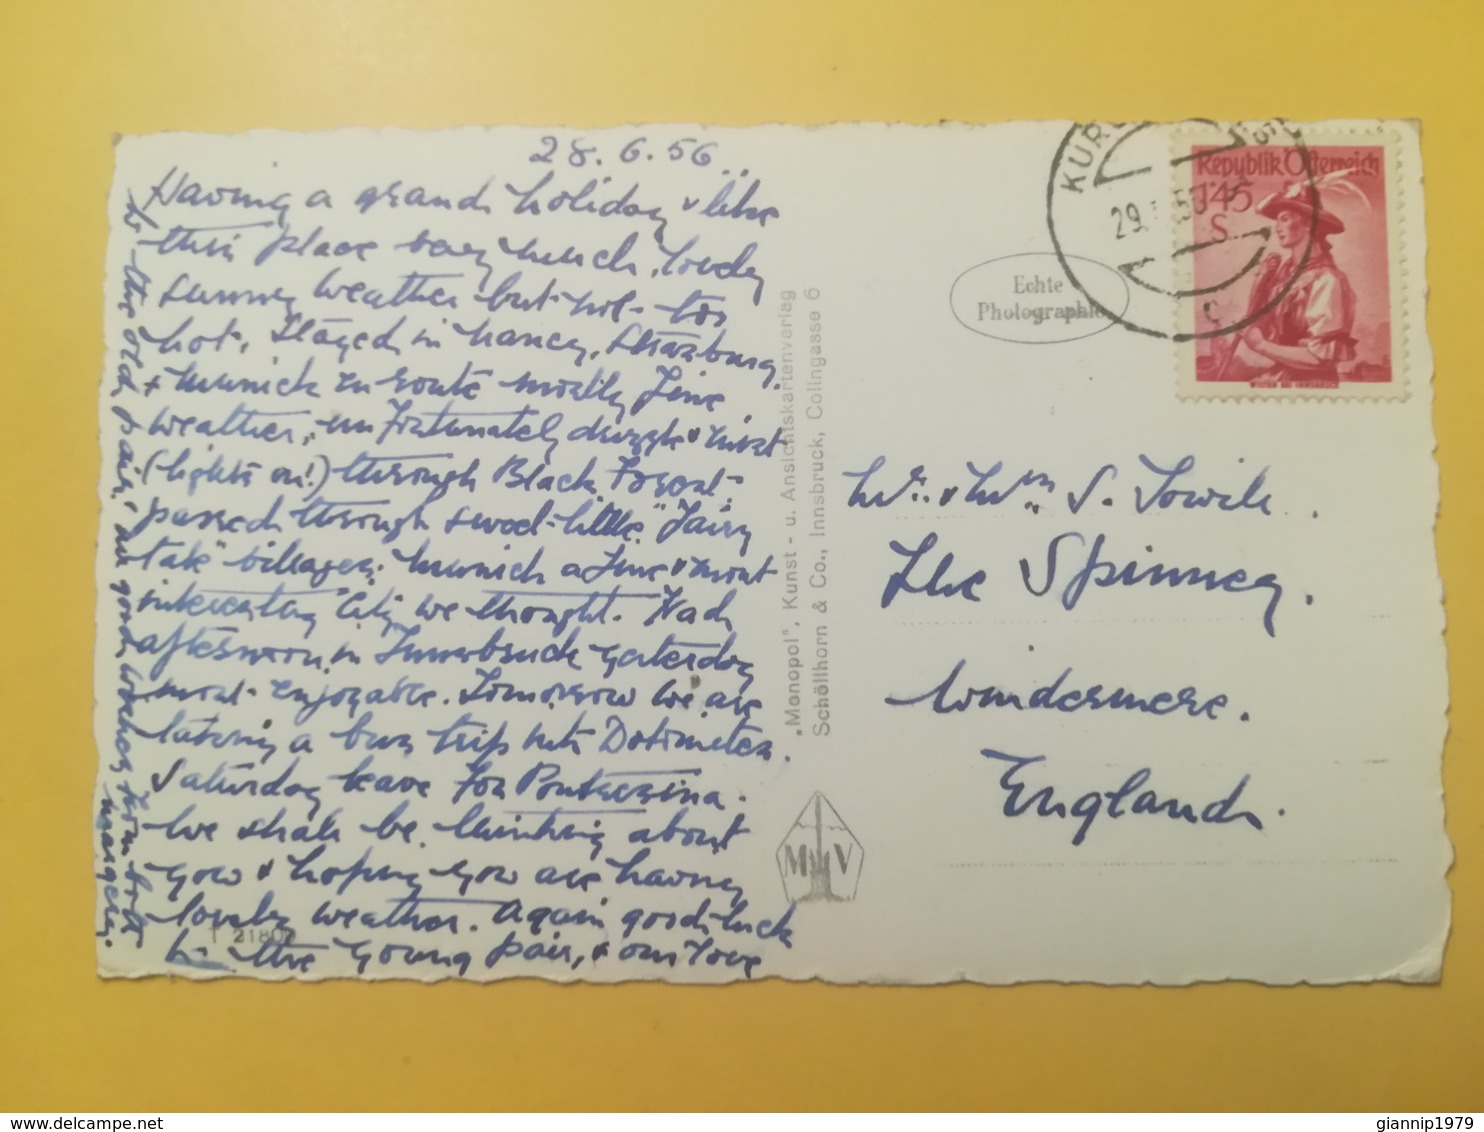 28.6.56
Having a grand holiday & like
this place very much, lovely
sunny weather but not too
hot. Stayed in Nancy, Strasburg
& Munich en route mostly fine
weather, unfortunately drizzle & mist
(lights on!) through Black Forest,
passed through sweet little "Fairy
tale" villages. Munich a fine & most
interesting city we thought. Had
afternoon in Innsbruck yesterday
most enjoyable. Tomorrow we are
taking a bus trip into Dolomites.
Saturday leave for Pontresina.
We shall be thinking about
you & hoping you are having
lovely weather. Again good luck
to the young pair, & our love
to the old pair, and good wishes from both
Margery.
T 21800
"Monopol", Kunst - u. Ansichtskartenverlag
Schöllhorn & Co., Innsbruck, Collingasse 6
M V
Echte
Photographie
KUR
29. 56
c
Republik Österreich
1'45
S
WILTEN BEI INNSBRUCK
Mr. & Mrs S.
The Spinney.
Windermere.
England.
giannip1979